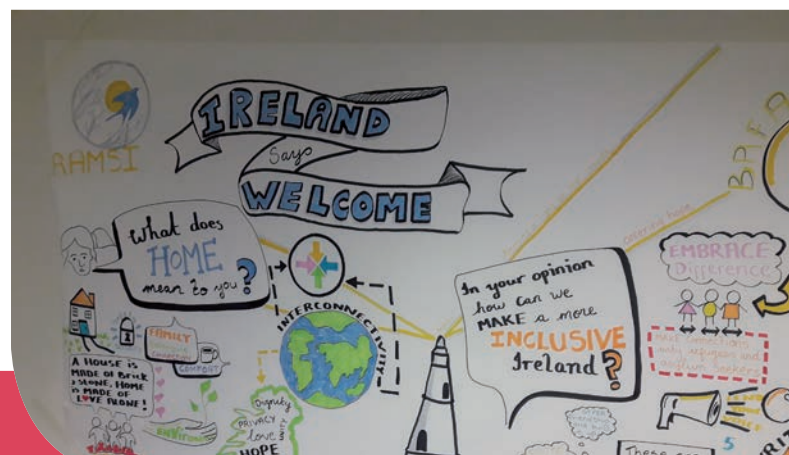 RAMSI
IRELAND
Says
WELCOME
What does
HOME
mean to you?
INTERCONNECTIVITY
FAMILY
COMFORT
A HOUSE IS
MADE OF Brick
& STONE, HOME
IS MADE OF
LOVE ALONE!
Dignity
PRIVACY
love
UNITY
HOPE
In your opinion
how can we
MAKE a more
INCLUSIVE
Ireland?
offering hope
EMBRACE
Difference
Make connections
with refugees and
asylum seekers
5
These are